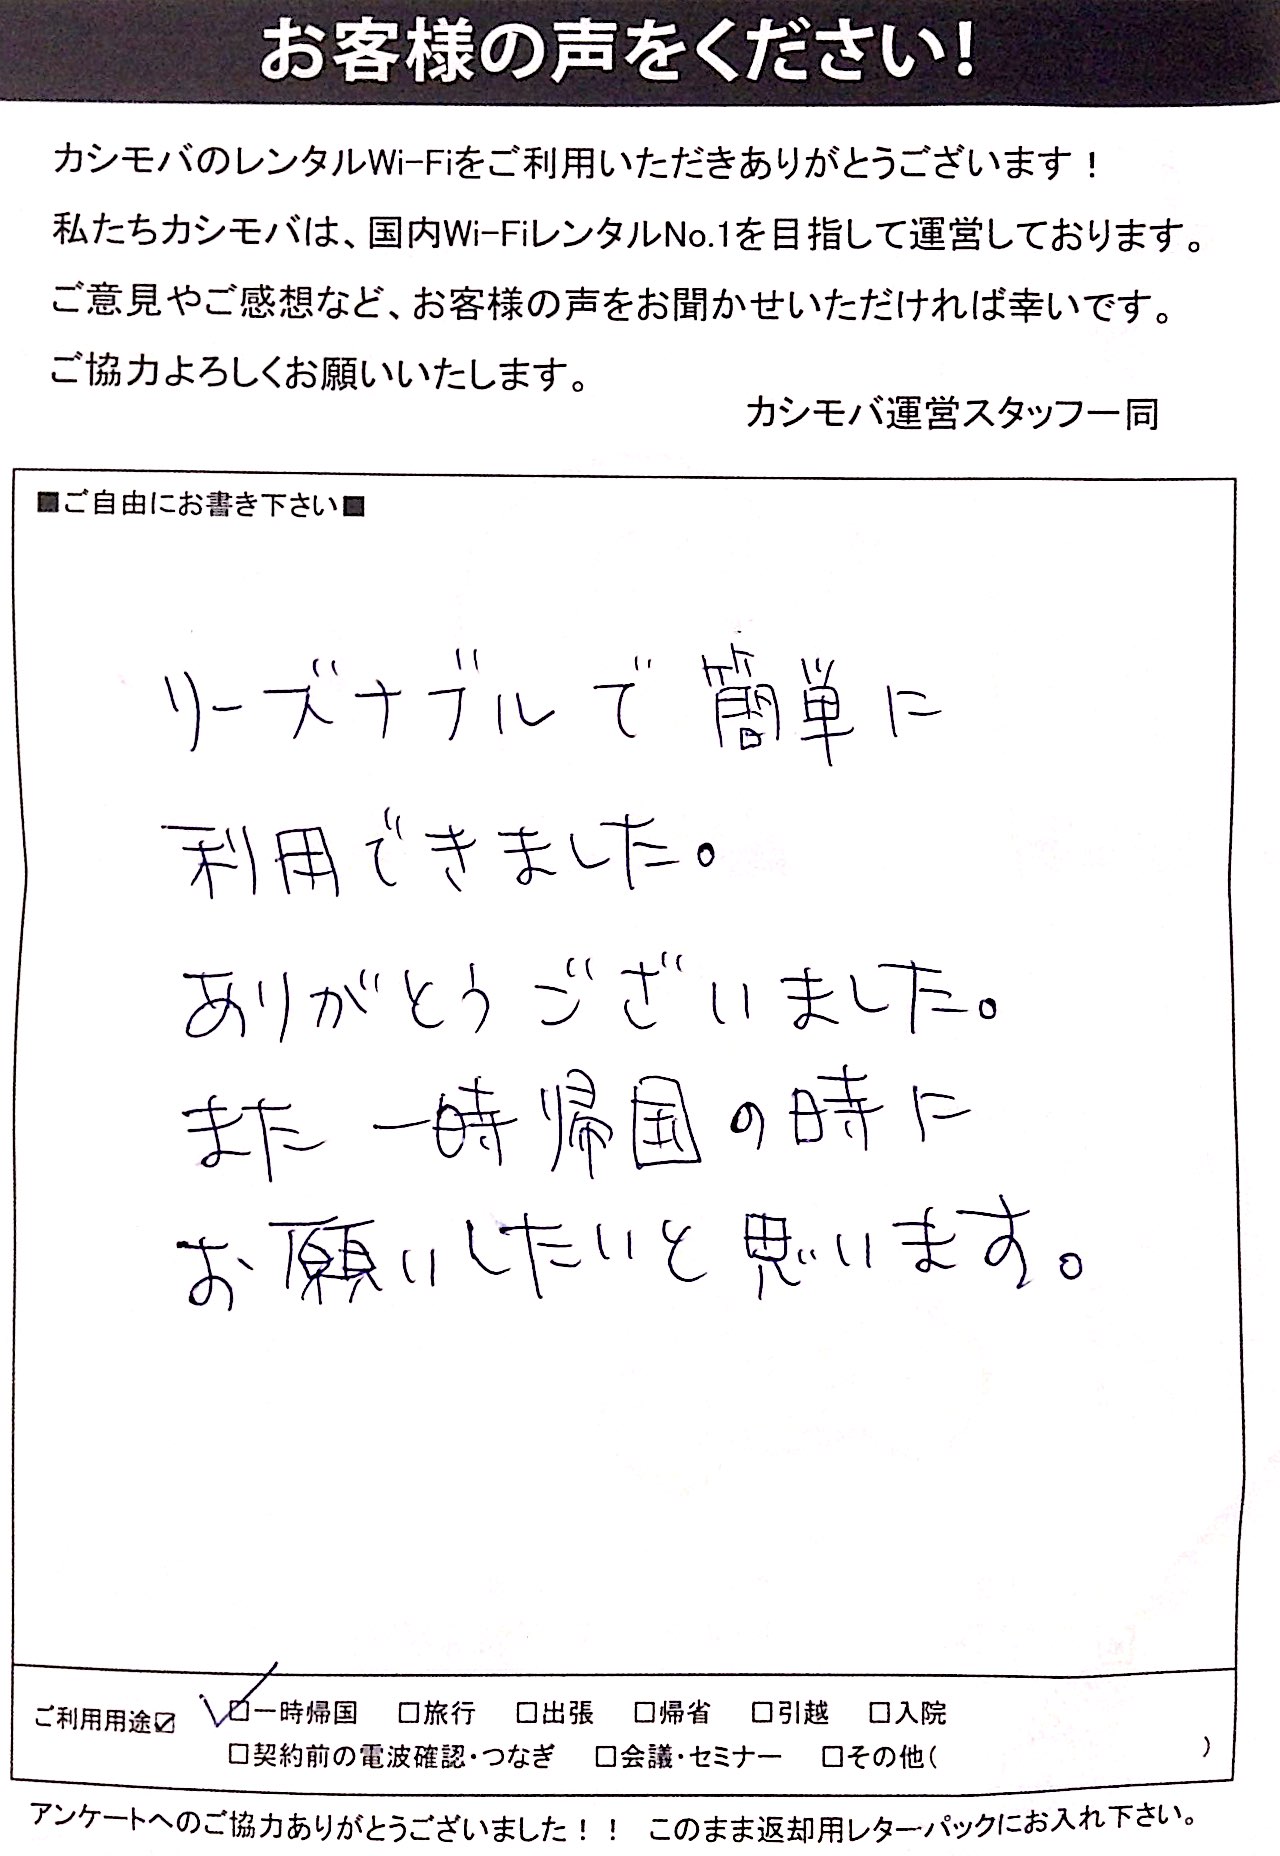 お客様の声をください!
カシモバのレンタルWi-Fiをご利用いただきありがとうございます！
私たちカシモバは、国内Wi-FiレンタルNo.1を目指して運営しております。
ご意見やご感想など、お客様の声をお聞かせいただければ幸いです。
ご協力よろしくお願いいたします。
カシモバ運営スタッフ一同
■ご自由にお書き下さい■
リーズナブルで簡単に
利用できました。
ありがとうございました。
また一時帰国の時に
お願いしたいと思います。
ご利用用途☑ ☑一時帰国 □旅行 □出張 □帰省 □引越 □入院
□契約前の電波確認・つなぎ □会議・セミナー □その他( )
アンケートへのご協力ありがとうございました！！ このまま返却用レターパックにお入れ下さい。